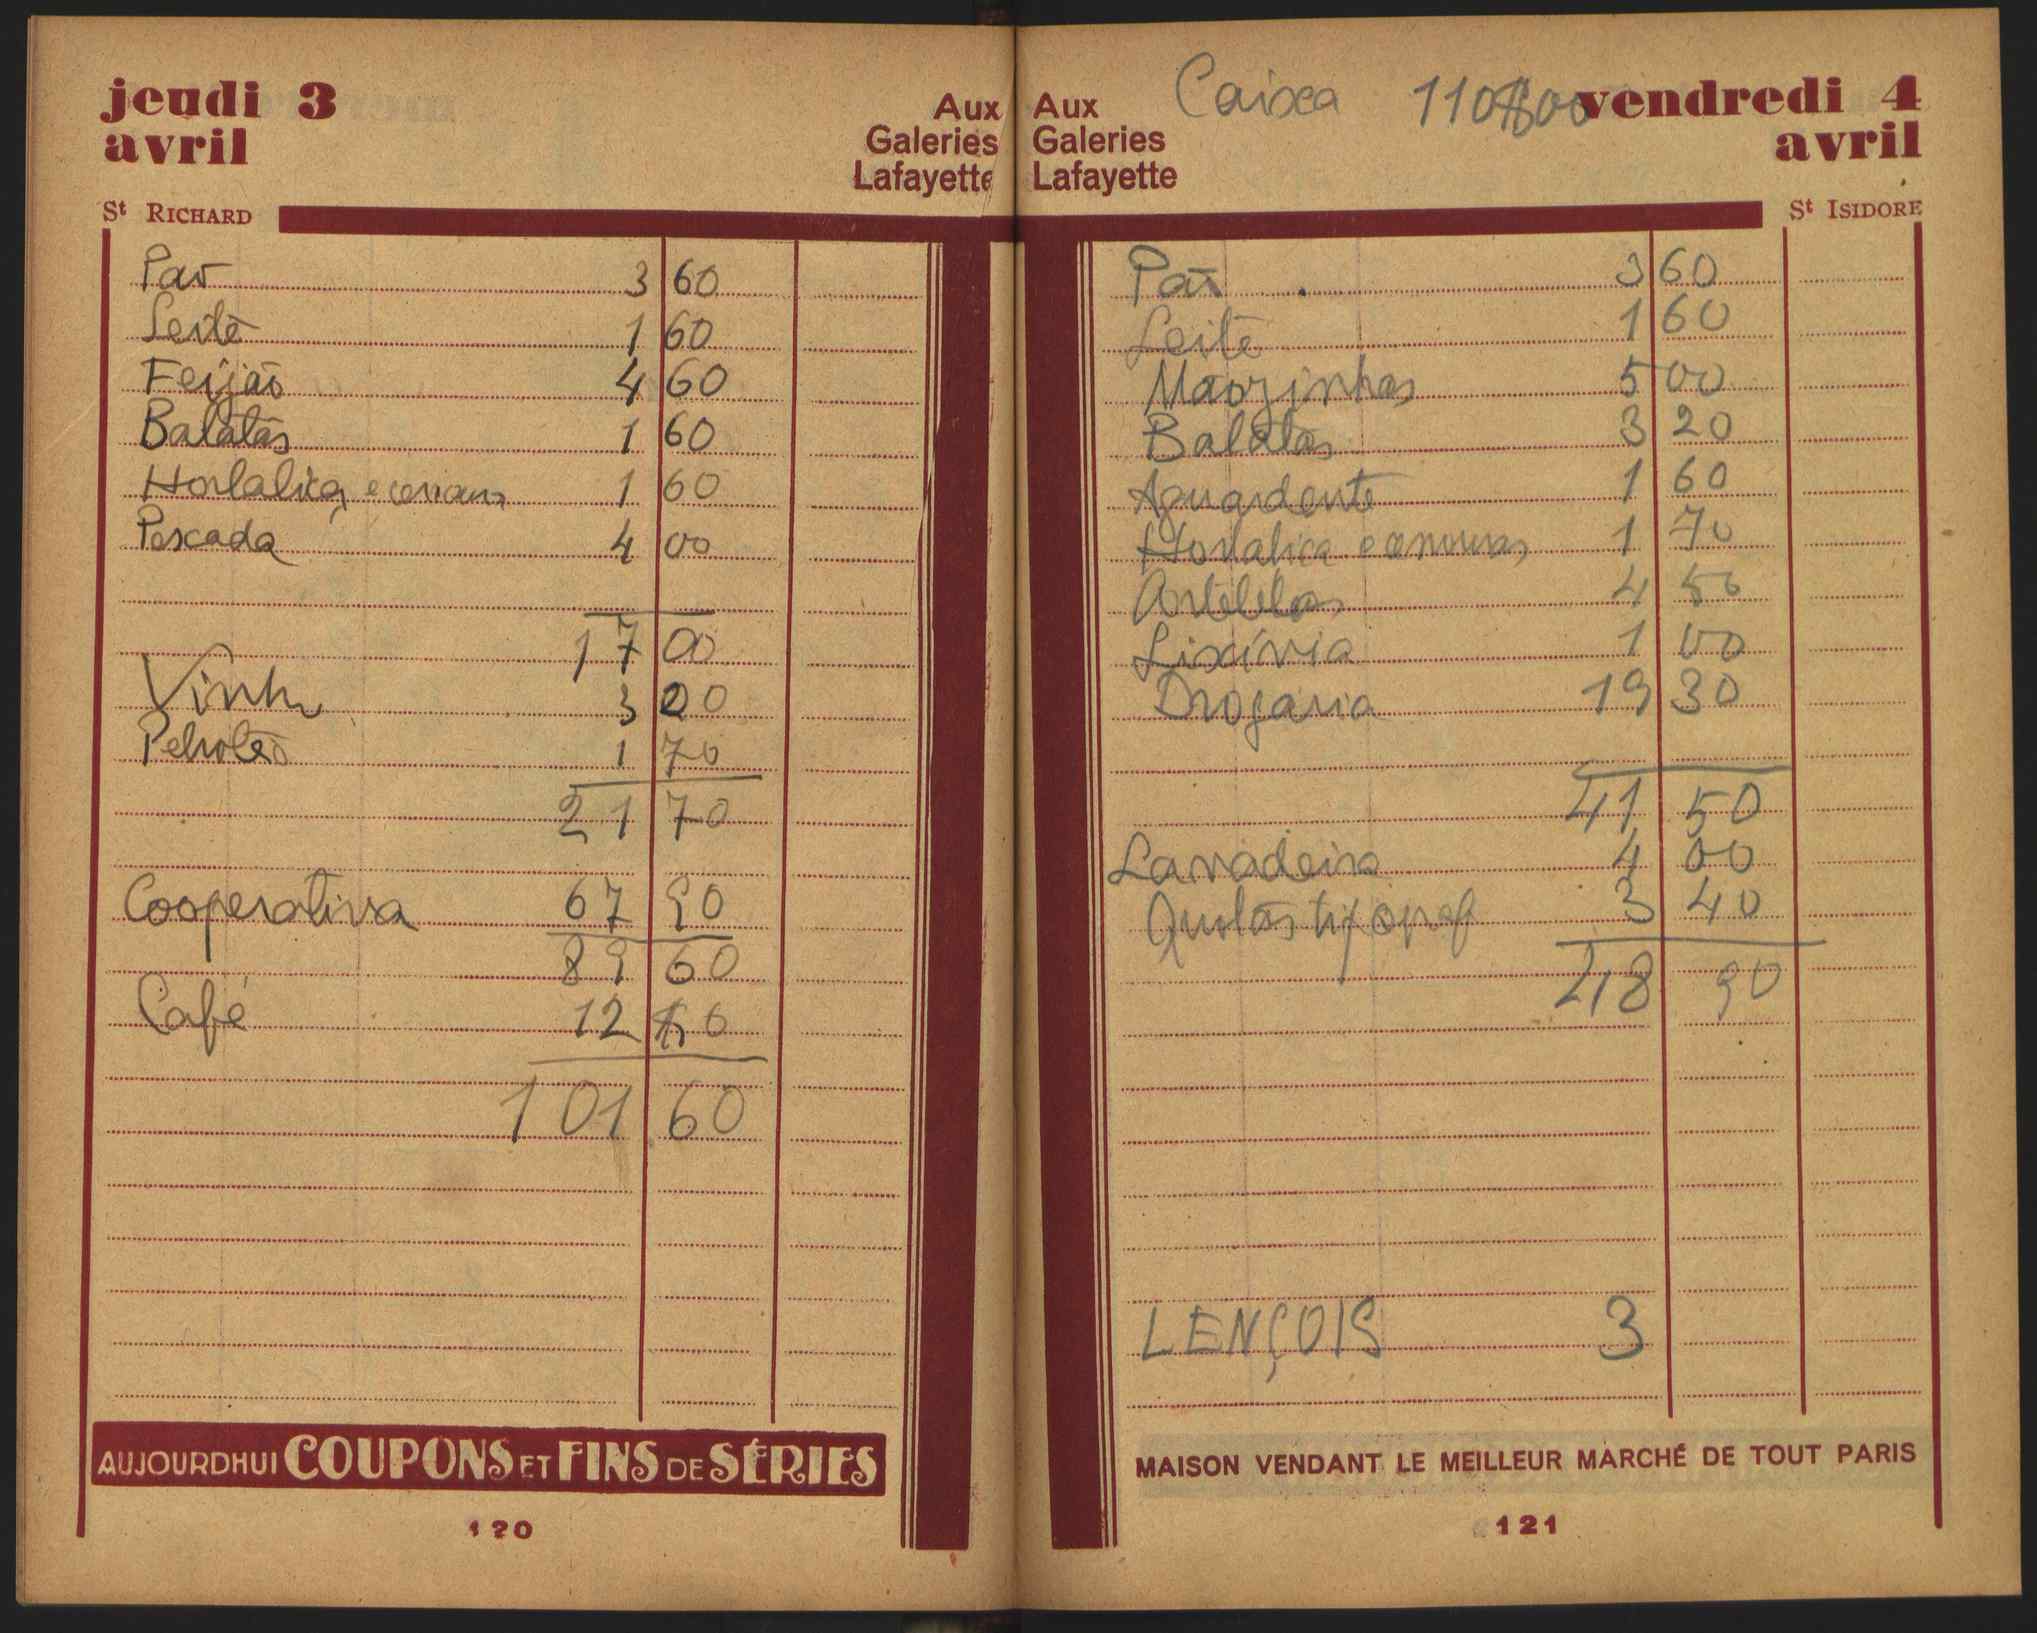 jeudi 3
avril
Aux
Galeries
Lafayette
St RICHARD
Pão 3 60
Leite 1 60
Feijão 4 60
Batatas 1 60
Hortaliça e cenouras 1 60
Pescada 4 00
17 00
Vinho 3 00
Petroleo 1 70
21 70
Cooperativa 67 90
89 60
Café 12 00
101 60
AUJOURDHUI COUPONS ET FINS DE SÉRIES
120
Caixa 110$00
Aux
Galeries
Lafayette
vendredi 4
avril
St ISIDORE
Pão 3 60
Leite 1 60
Mãozinhas 5 00
Batatas 3 20
Aguardente 1 60
Hortaliça e cenouras 1 70
4 50
Lixívia 1 00
Drogaria 19 30
41 50
Lavadeira 4 00
Quotas 3 40
48 90
LENÇOIS 3
MAISON VENDANT LE MEILLEUR MARCHÉ DE TOUT PARIS
121